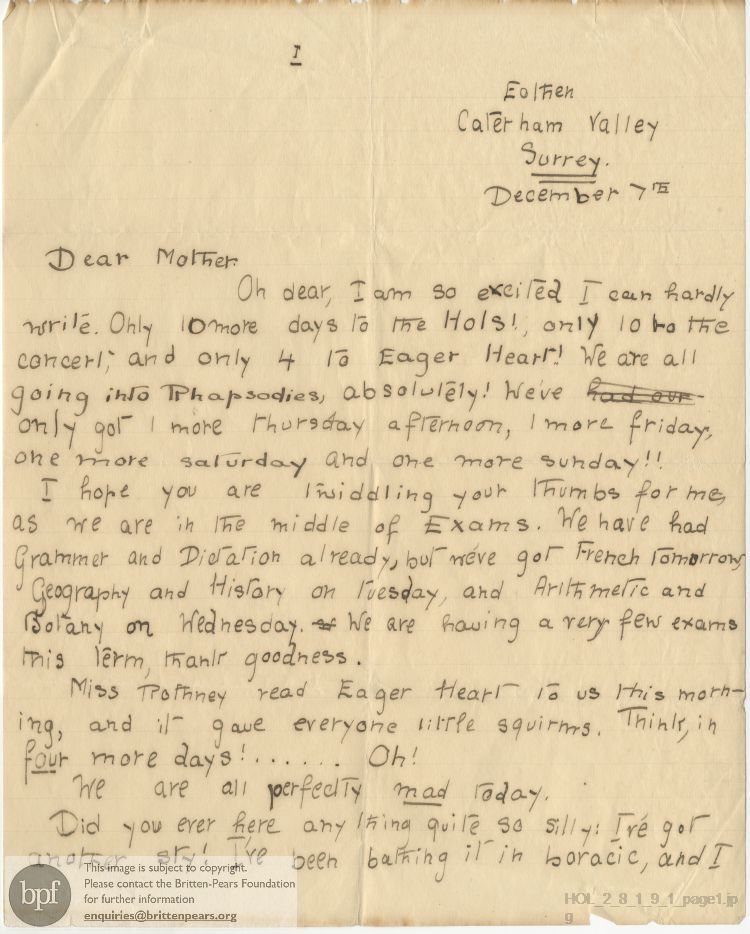 I
Eothen
Caterham Valley
Surrey.
December 7TH
Dear Mother.
Oh dear, I am so excited I can hardly
write. Only 10 more days to the Hols!, only 10 to the
concert; and only 4 to Eager Heart! We are all
going into Rhapsodies, absolutely! We've had our
only got 1 more thursday afternoon, 1 more friday,
one more saturday and one more sunday!!
I hope you are twiddling your thumbs for me,
as we are in the middle of Exams. We have had
Grammer and Dictation already, but we've got French tomorrow,
Geography and History on tuesday, and Arithmetic and
Botany on Wednesday. We are having a very few exams
this term, thank goodness.
Miss Pothney read Eager Heart to us this morn-
ing, and it gave everyone little squirms. Think, in
four more days!...... Oh!
We are all perfectly mad today.
Did you ever here anything quite so silly: I've got
another sty! I've been bathing it in boracic, and I
bpf
This image is subject to copyright.
Please contact the Britten-Pears Foundation
for further information
enquiries@brittenpears.org
HOL_2_8_1_9_1_page1.jp
g